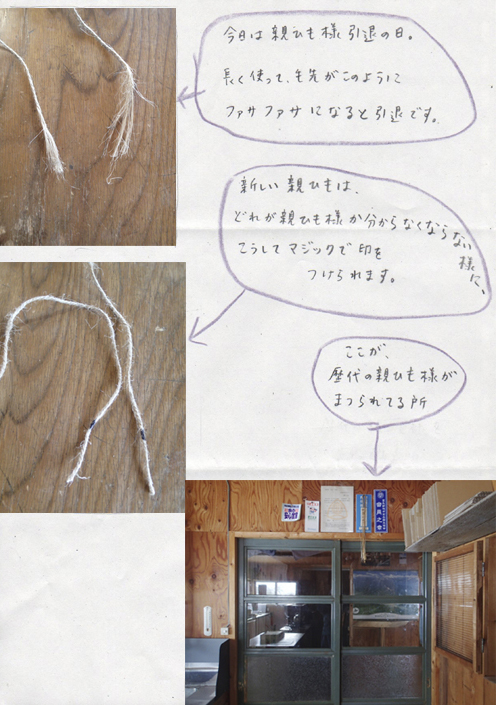 今日は親ひも様引退の日。
長く使って、毛先がこのように
ファサファサになると引退です。
新しい親ひもは、
どれが親ひも様か分からなくならない様に、
こうしてマジックで印を
つけられます。
ここが、
歴代の親ひも様が
まつられてる所